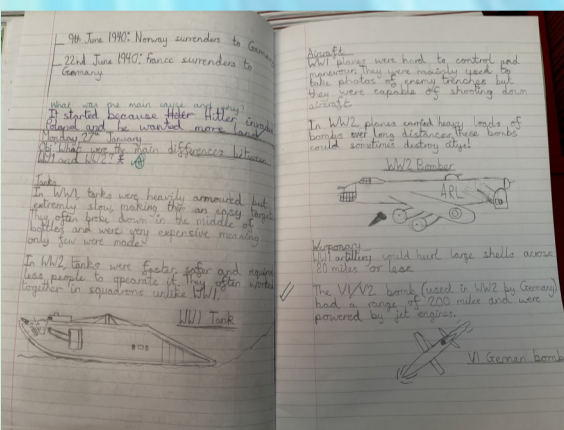 _ 9th June 1940: Norway surrenders to Germany
_ 22nd June 1940: France surrenders to
Germany
What was the main cause and why?
It started because Hitler
Poland and he wanted more land
Monday 27th January
Obj: What were the main differences between
WW1 and WW2?
Tanks
In WW1, tanks were heavily armoured but
extremly slow, making
They often broke down in the middle of
battles and were very expensive meaning
only few were made.
In WW2, tanks were faster, safer and
less people to opearate it. They often worked
together in squadrons unlike WW1.
WW1 Tank
Aircraft
WW1 planes were hard to control and
They were mainly used to
take photos of enemy trenches but
they were capable of shooting down
aircraft.
In WW2, planes carried heavy loads of
bombs over long distances, these bombs
could sometimes destroy citys!
WW2 Bomber
ARL
Weponary
WW1 artillery could hurl large shells across
80 miles or less
The V1/V2 bomb (used in WW2 by Germany)
had a range of 200 miles and were
powered by jet engines.
V1 German bomb